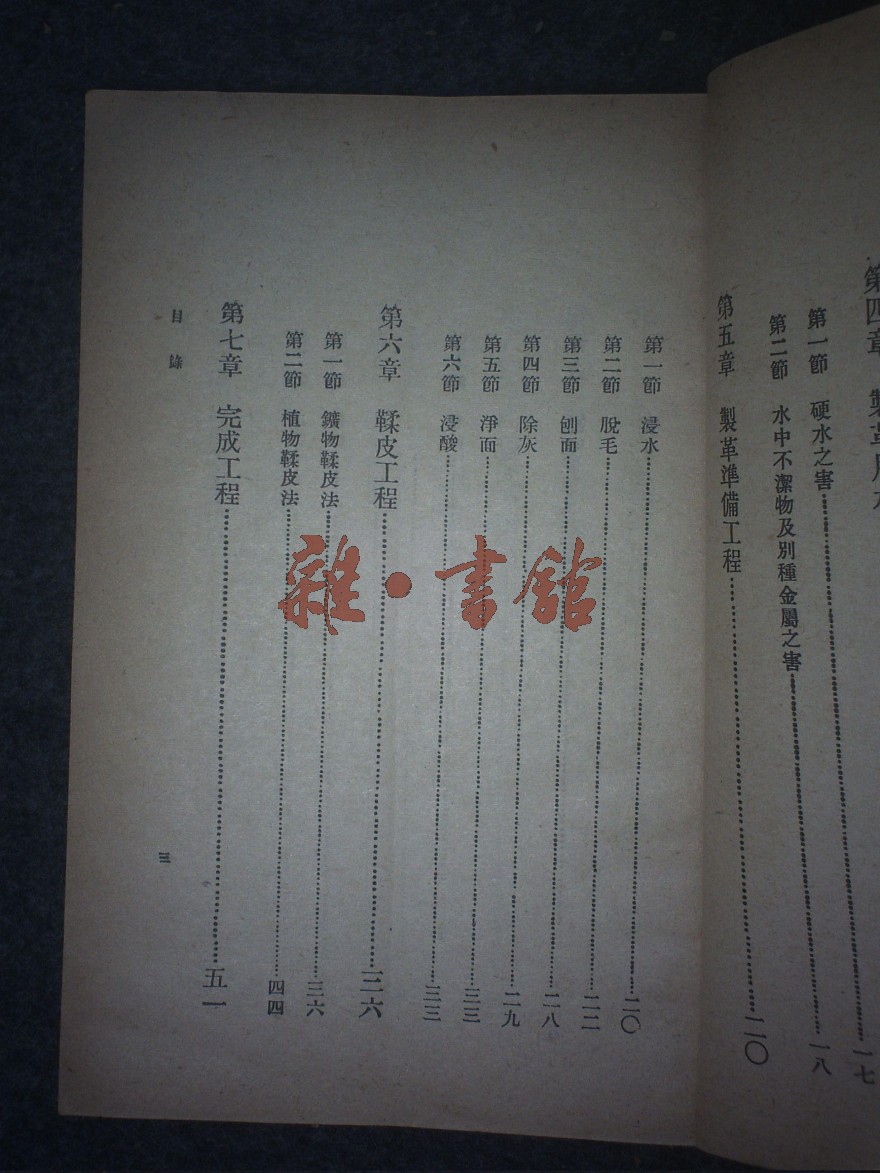 第四章 製革用水
第一節 硬水之害……一七
第二節 水中不潔物及別種金屬之害……一八
第五章 製革準備工程……二〇
第一節 浸水……二〇
第二節 脫毛……二二
第三節 刨面……二八
第四節 除灰……二九
第五節 淨面……三三
第六節 浸酸……三三
第六章 鞣皮工程……三六
第一節 鑛物鞣皮法……三六
第二節 植物鞣皮法……四四
第七章 完成工程……五一
目錄
三
雜·書館